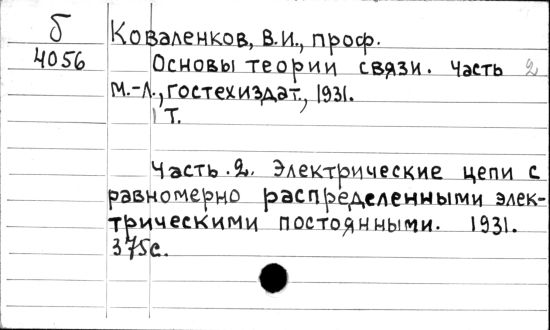 Б
4056
Коваленков, В.И., проф.
Основы теории связи. Часть 2
М.-Л., Гостехиздат, 1931.
1 т.
Часть 2. Электрические цепи с
равномерно распределенными элек-
трическими постоянными. 1931.
375с.